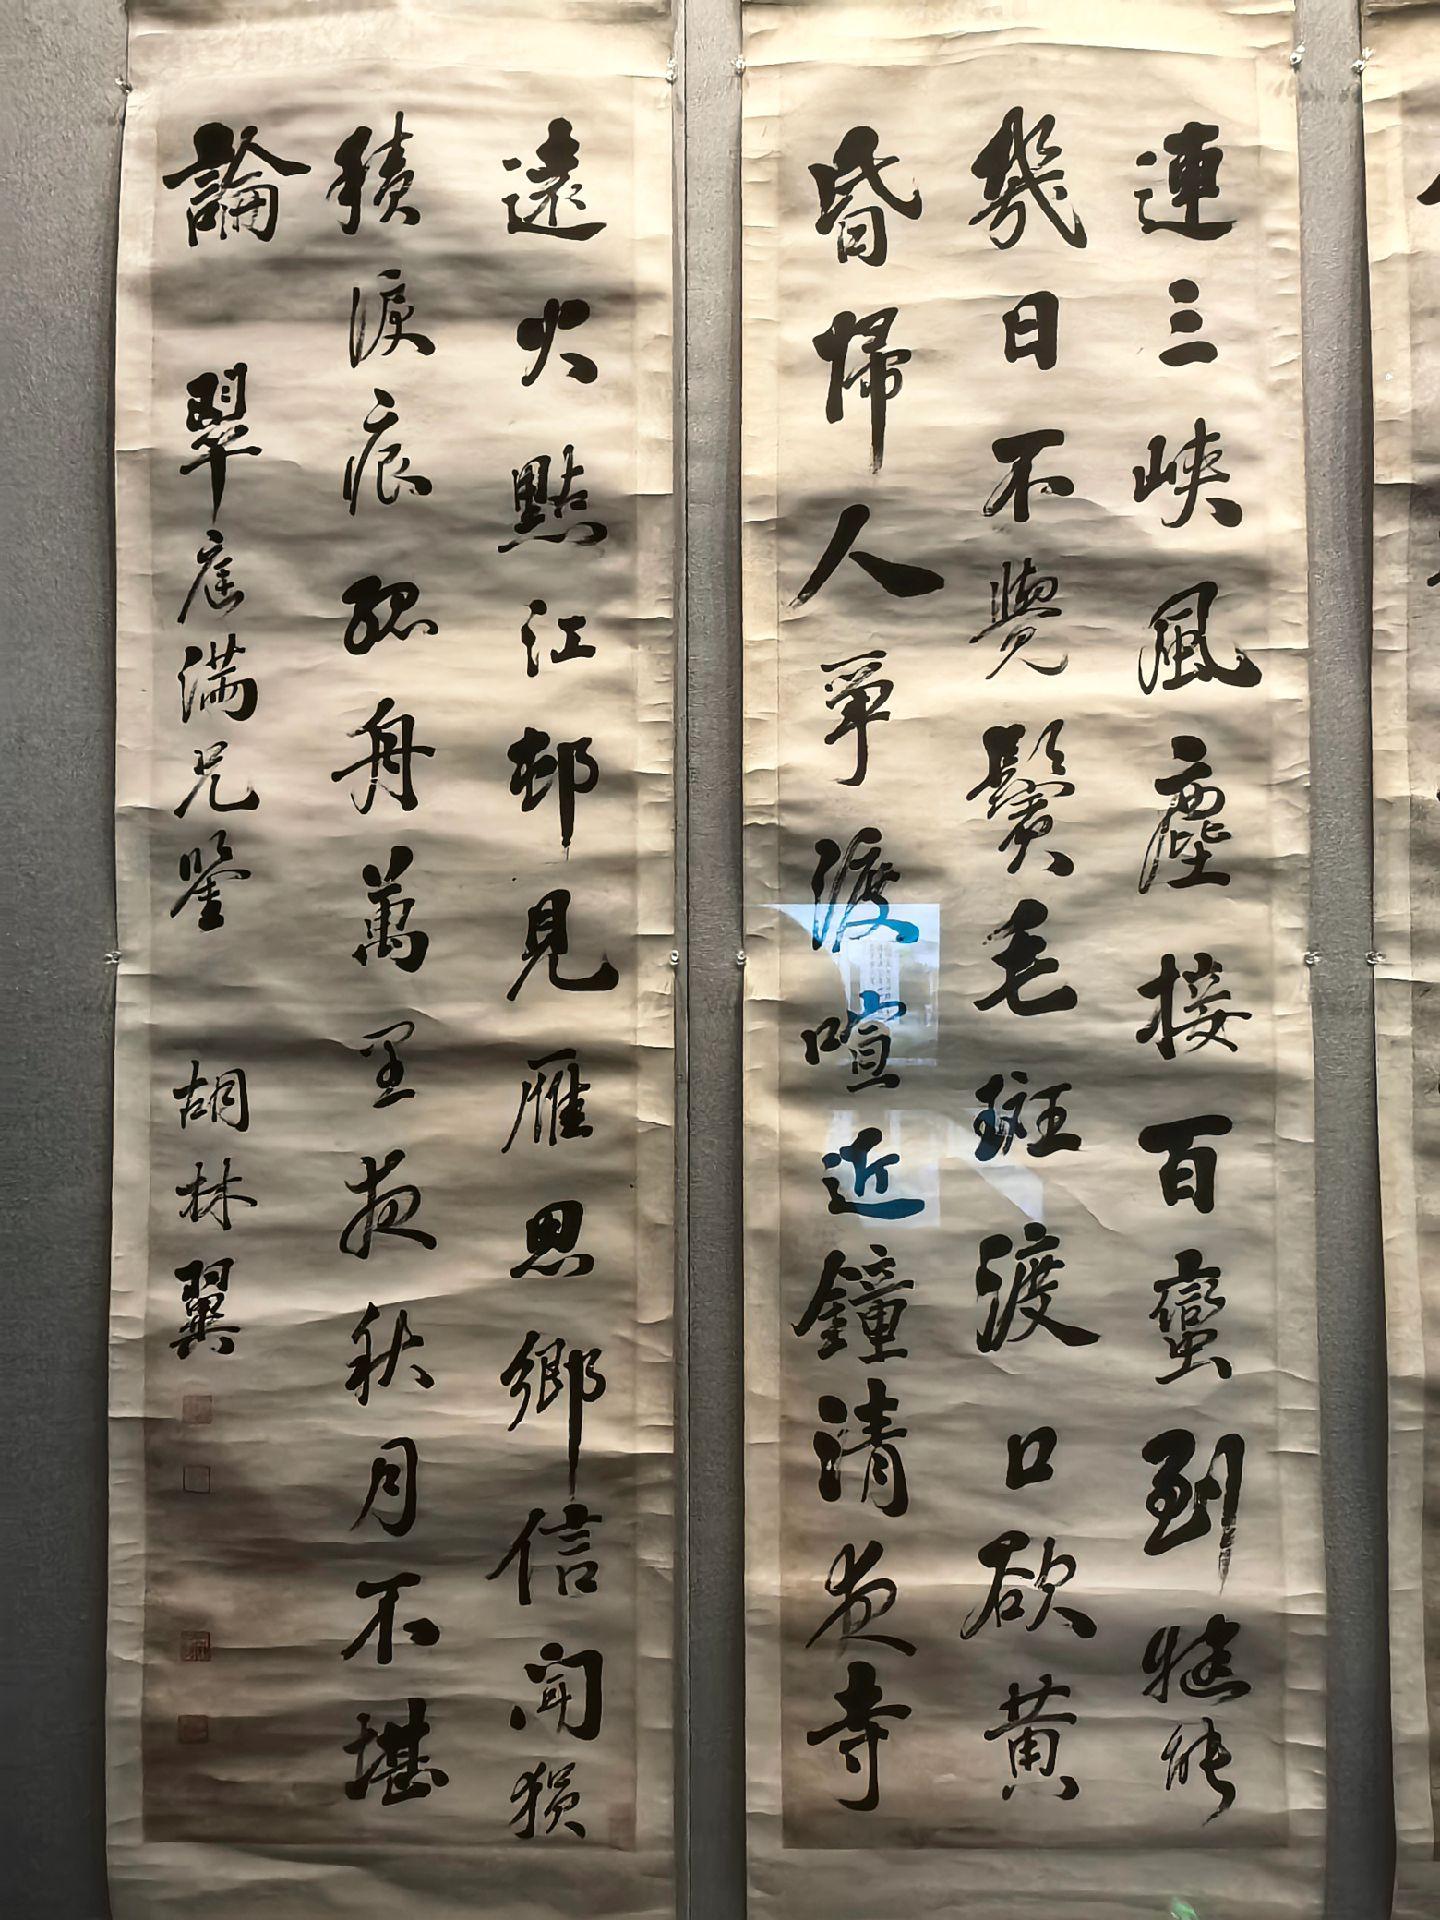 連三峽風塵接百蠻到
幾日不覺鬢毛斑渡口欲黃
昏歸人爭渡喧近鐘清夜寺
遠火點江邨見雁思鄉信聞猿
積淚痕孤舟萬里夜秋月不堪
論 翠庭滿兄鑒 胡林翼